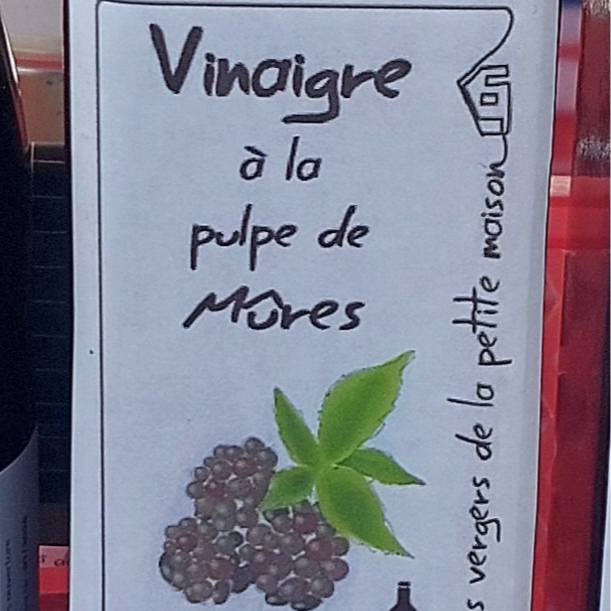 Vinaigre
à la
pulpe de
Mûres
vergers de la petite maison